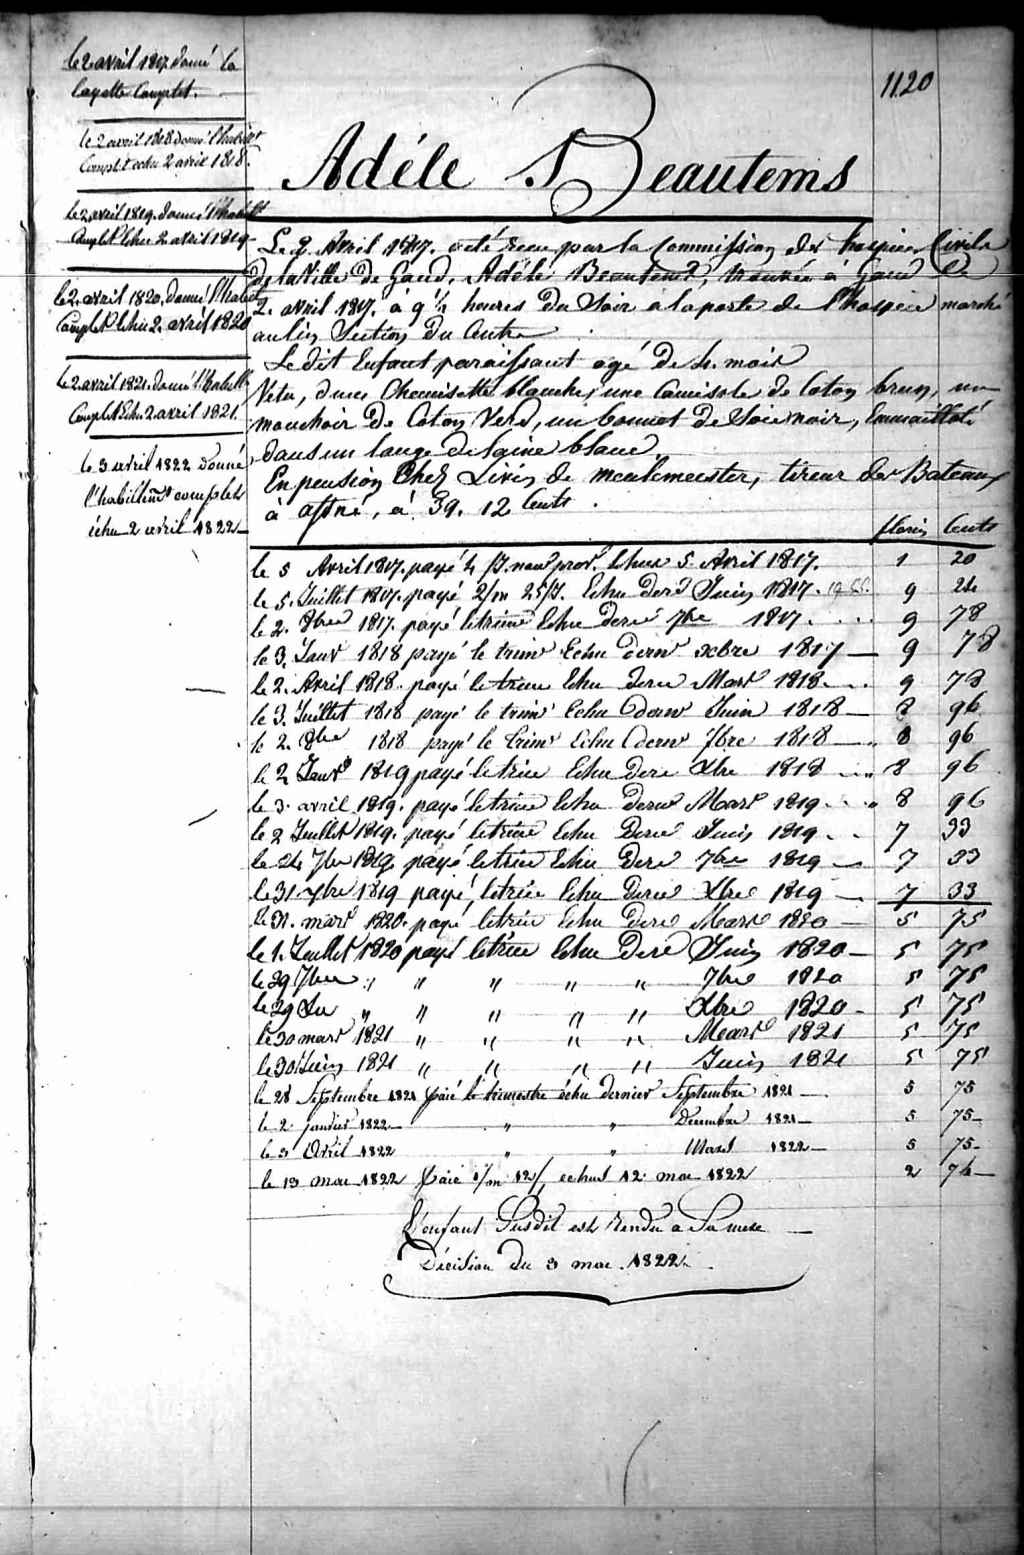 le 2 avril 1817 donné la
layette Complet.
le 2 avril 1818 donné l'habilt
Complet echu 2 avril 1818.
le 2 avril 1819. donné l'habillt
Complet Echu 2 avril 1819
le 2. avril 1820. donné l'habillt
Complet Echu 2. avril 1820
le 2 avril 1821. donné l'habillt
Complet Echu 2 avril 1821.
le 3 avril 1822 donné
l'habillemt complet
échu 2 avril 1822
1120
Adéle Beautems
Le 2 Avril 1817. a été recu par la Commission des hospices Civils
de la Ville de Gand, Adéle Beautems, trouvée à Gand le
2 avril 1817. a 9 ½ heures du Soir à la porte de l'hospice marché
au lin Section du Centre
Le dit Enfant paraissant agé de 4. mois
Vetu, d'une Chemisette blanche, une Camisole de Coton brun, un
mouchoir de Coton Verd, un bonnet de Soie noir, Emmailloté
dans un lange de laine blanc
En pension Chez Livin de meulemeester, tireur de Bateaux
à astné, á 39. 12 Cents.
florins Cents
le 5 Avril 1817. payé nouv prov. Echue 5 Avril 1817. 1 20
le 5. Juillet 1817. payé 2/m 25/J. Echu derr Juin 1817. 9 24
le 2. 8bre 1817. payé le trime Echu derr 7bre 1817. 9 78
le 3. Janvr 1818 payé le trimr Echu dernr xbre 1817 9 78
le 2. Avril 1818. payé le trime Echu derr Mars 1818. 9 78
le 3. Juillet 1818 payé le trimr Echu dernr Juin 1818 8 96
le 2. 8bre 1818 payé le trimr Echu dernr 7bre 1818 8 96
le 2 Janvr 1819 payé le trime Echu derr Xbre 1818 8 96
le 3. avril 1819. payé le trime Echu dernr Mars 1819 8 96
le 2 Juillet 1819. payé le trime Echu derr Juin 1819 7 33
le 24 7bre 1819 payé le trime Echu derr 7bre 1819 7 33
le 31 xbre 1819 payé, le trime Echu derr Xbre 1819 7 33
le 31. mars 1820. payé le trime Echu derr Mars 1820 5 75
le 1. Juillet 1820 payé le trime Echu derr Juin 1820 5 75
le 29 7bre " " " " " 7bre 1820 5 75
le 29 Xbre " " " " " Xbre 1820 5 75
le 30 mars 1821 " " " " Mars 1821 5 75
le 30 Juin 1821 " " " " Juin 1821 5 75
le 28 Septembre 1821 paié le trimestre échu dernier Septembre 1821 5 75
le 2 janvier 1822 " " Decembre 1821 5 75
le 3 Avril 1822 " " Mars 1822 5 75
le 13 mai 1822 paié 1/m 12/J echus 12 mai 1822 2 76
L'enfant Susdit est Rendu a Sa mere
Décision du 3 mai 1822.